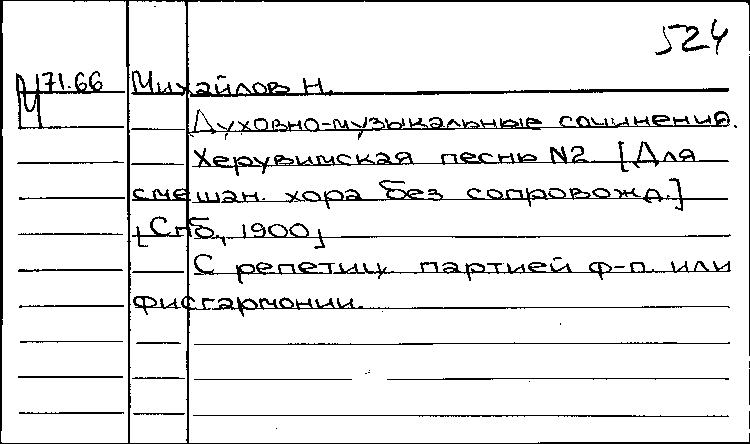 524
М 71.66 Михайлов Н.
Духовно-музыкальные сочинения.
Херувимская песнь N2 [Для
смешан. хора без сопровожд.]
[Спб., 1900]
С репетиц. партией ф-п. или
фисгармонии.